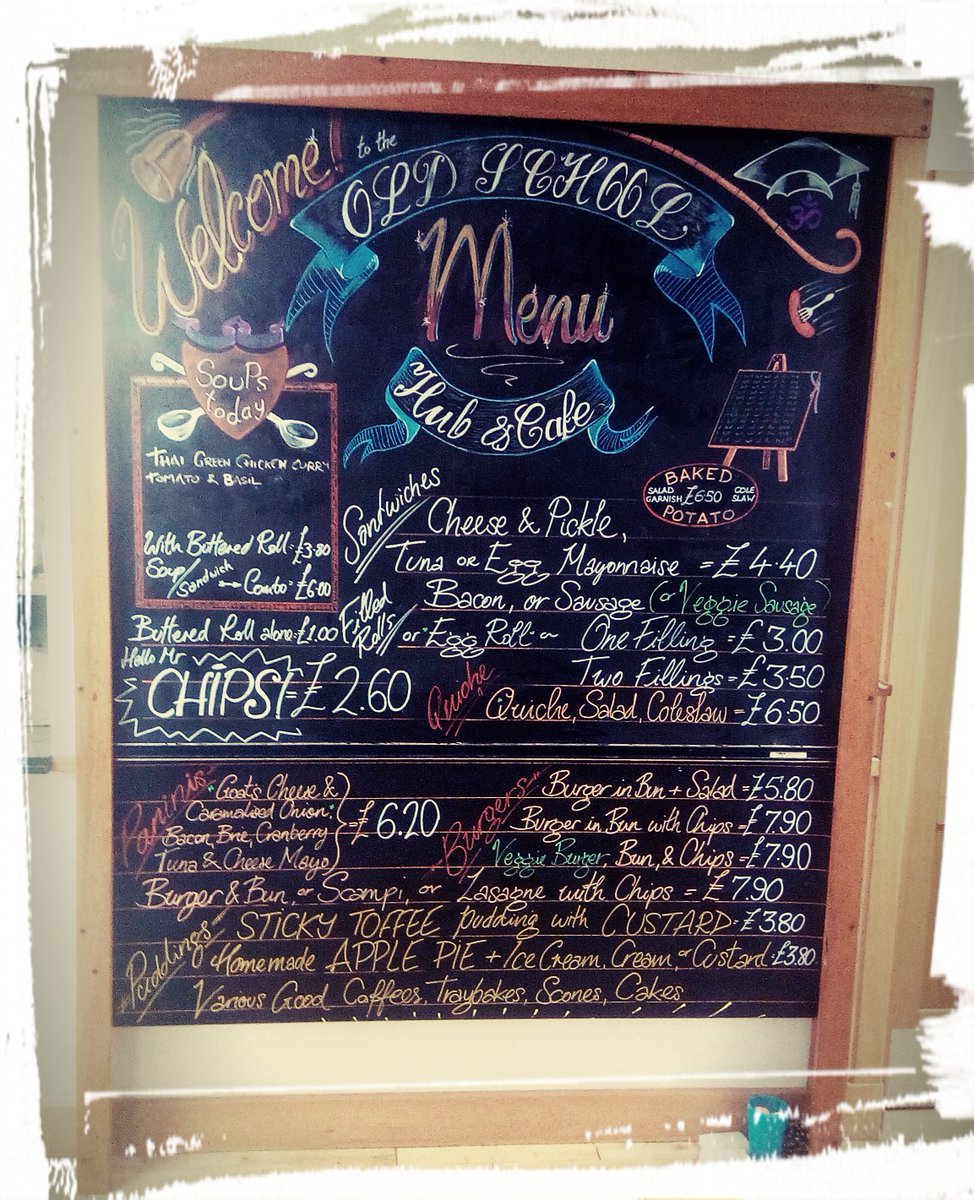 Welcome! to the
OLD SCHOOL
Menu
Hub & Cafe
Soups
today
THAI GREEN CHICKEN CURRY
TOMATO & BASIL
With Buttered Roll £3.80
Soup/Sandwich Combo = £6.00
Buttered Roll alone £1.00
Hello Mr
CHIPS! = £2.60
BAKED
SALAD GARNISH £6.50 COLE SLAW
POTATO
Sandwiches
Cheese & Pickle,
Tuna or Egg Mayonnaise = £4.40
Filled Rolls
Bacon, or Sausage (or Veggie Sausage)
or Egg Roll One Filling = £3.00
Two Fillings = £3.50
Quiche
Quiche, Salad, Coleslaw = £6.50
Paninis
Goats Cheese &
Caramalised Onion
Bacon, Brie, Cranberry
Tuna & Cheese Mayo
= £6.20
Burgers
Burger in Bun + Salad = £5.80
Burger in Bun with Chips = £7.90
Veggie Burger, Bun, & Chips = £7.90
Burger & Bun, or Scampi, or Lasagne with Chips = £7.90
Puddings
STICKY TOFFEE Pudding with CUSTARD £3.80
Homemade APPLE PIE + Ice Cream, Cream, or Custard £3.80
Various Good Coffees, Traybakes, Scones, Cakes